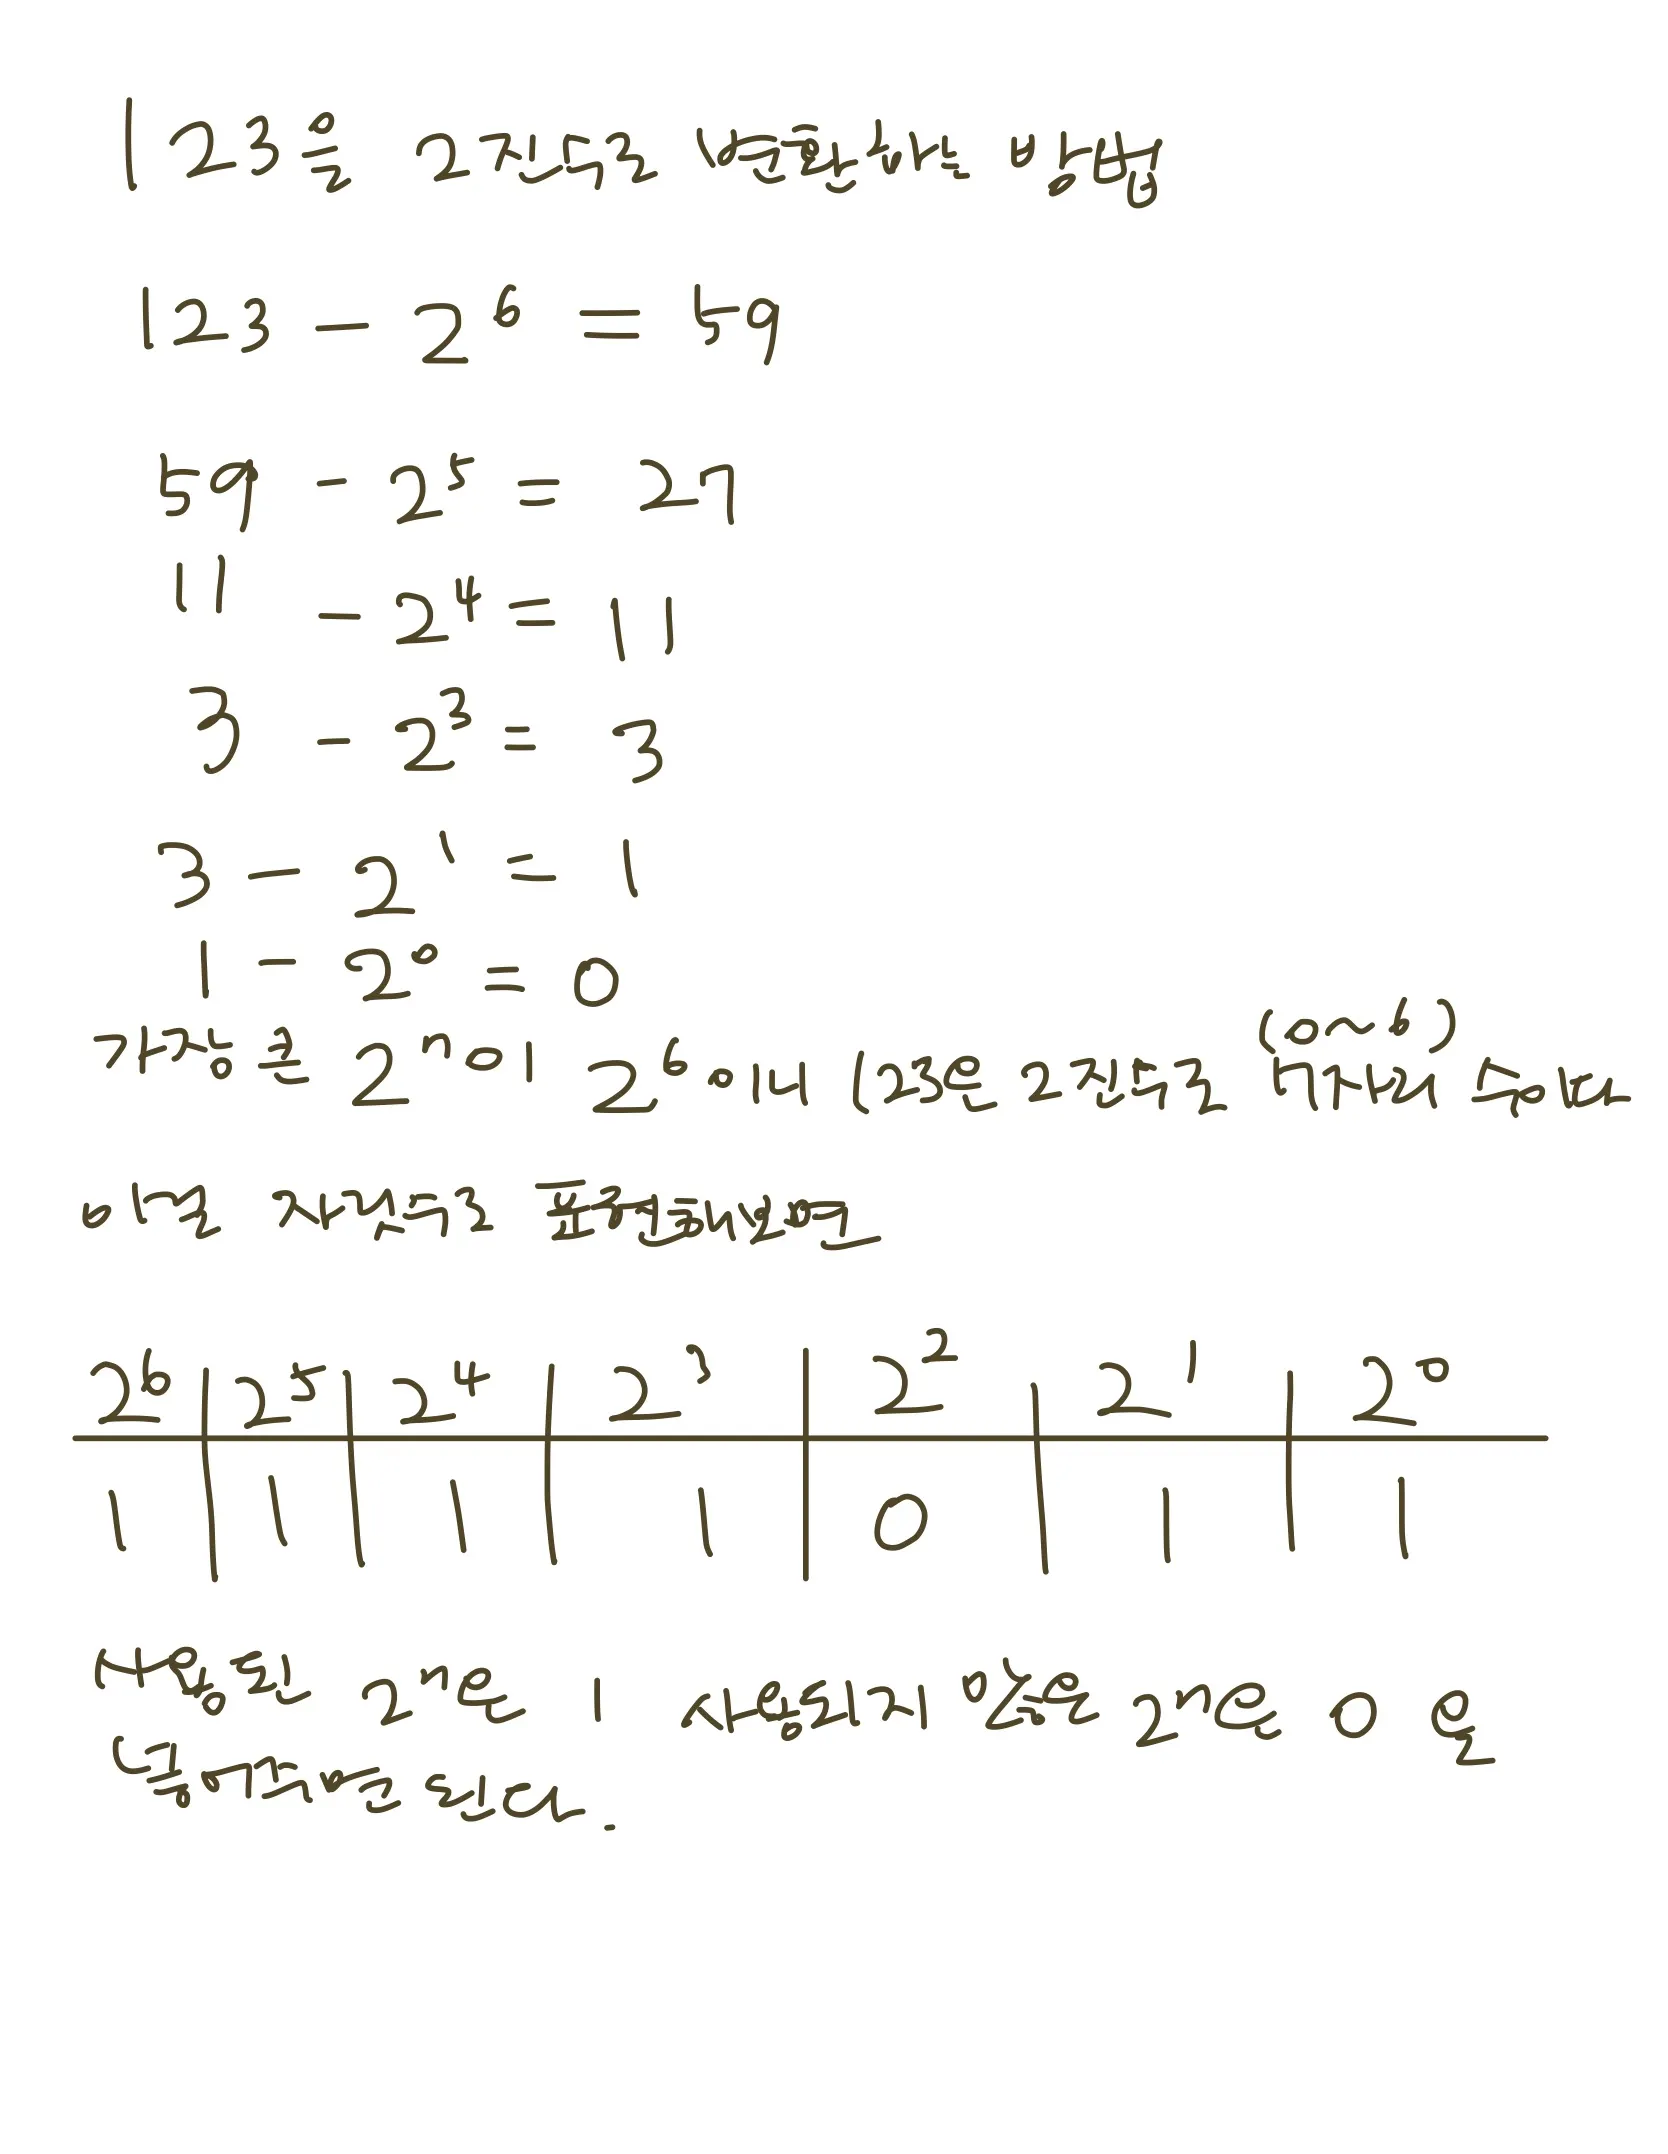 123을 2진수로 변환하는 방법
123 - 2⁶ = 59
59 - 2⁵ = 27
11 - 2⁴ = 11
3 - 2³ = 3
3 - 2¹ = 1
1 - 2⁰ = 0
(0~6)
가장 큰 2ⁿ이 2⁶이니 123은 2진수로 7자리 수이다
이걸 자릿수로 표현해보면
2⁶ | 2⁵ | 2⁴ | 2³ | 2² | 2¹ | 2⁰
1 | 1 | 1 | 1 | 0 | 1 | 1
사용된 2ⁿ은 1 사용되지 않은 2ⁿ은 0 을
넣어주면 된다.